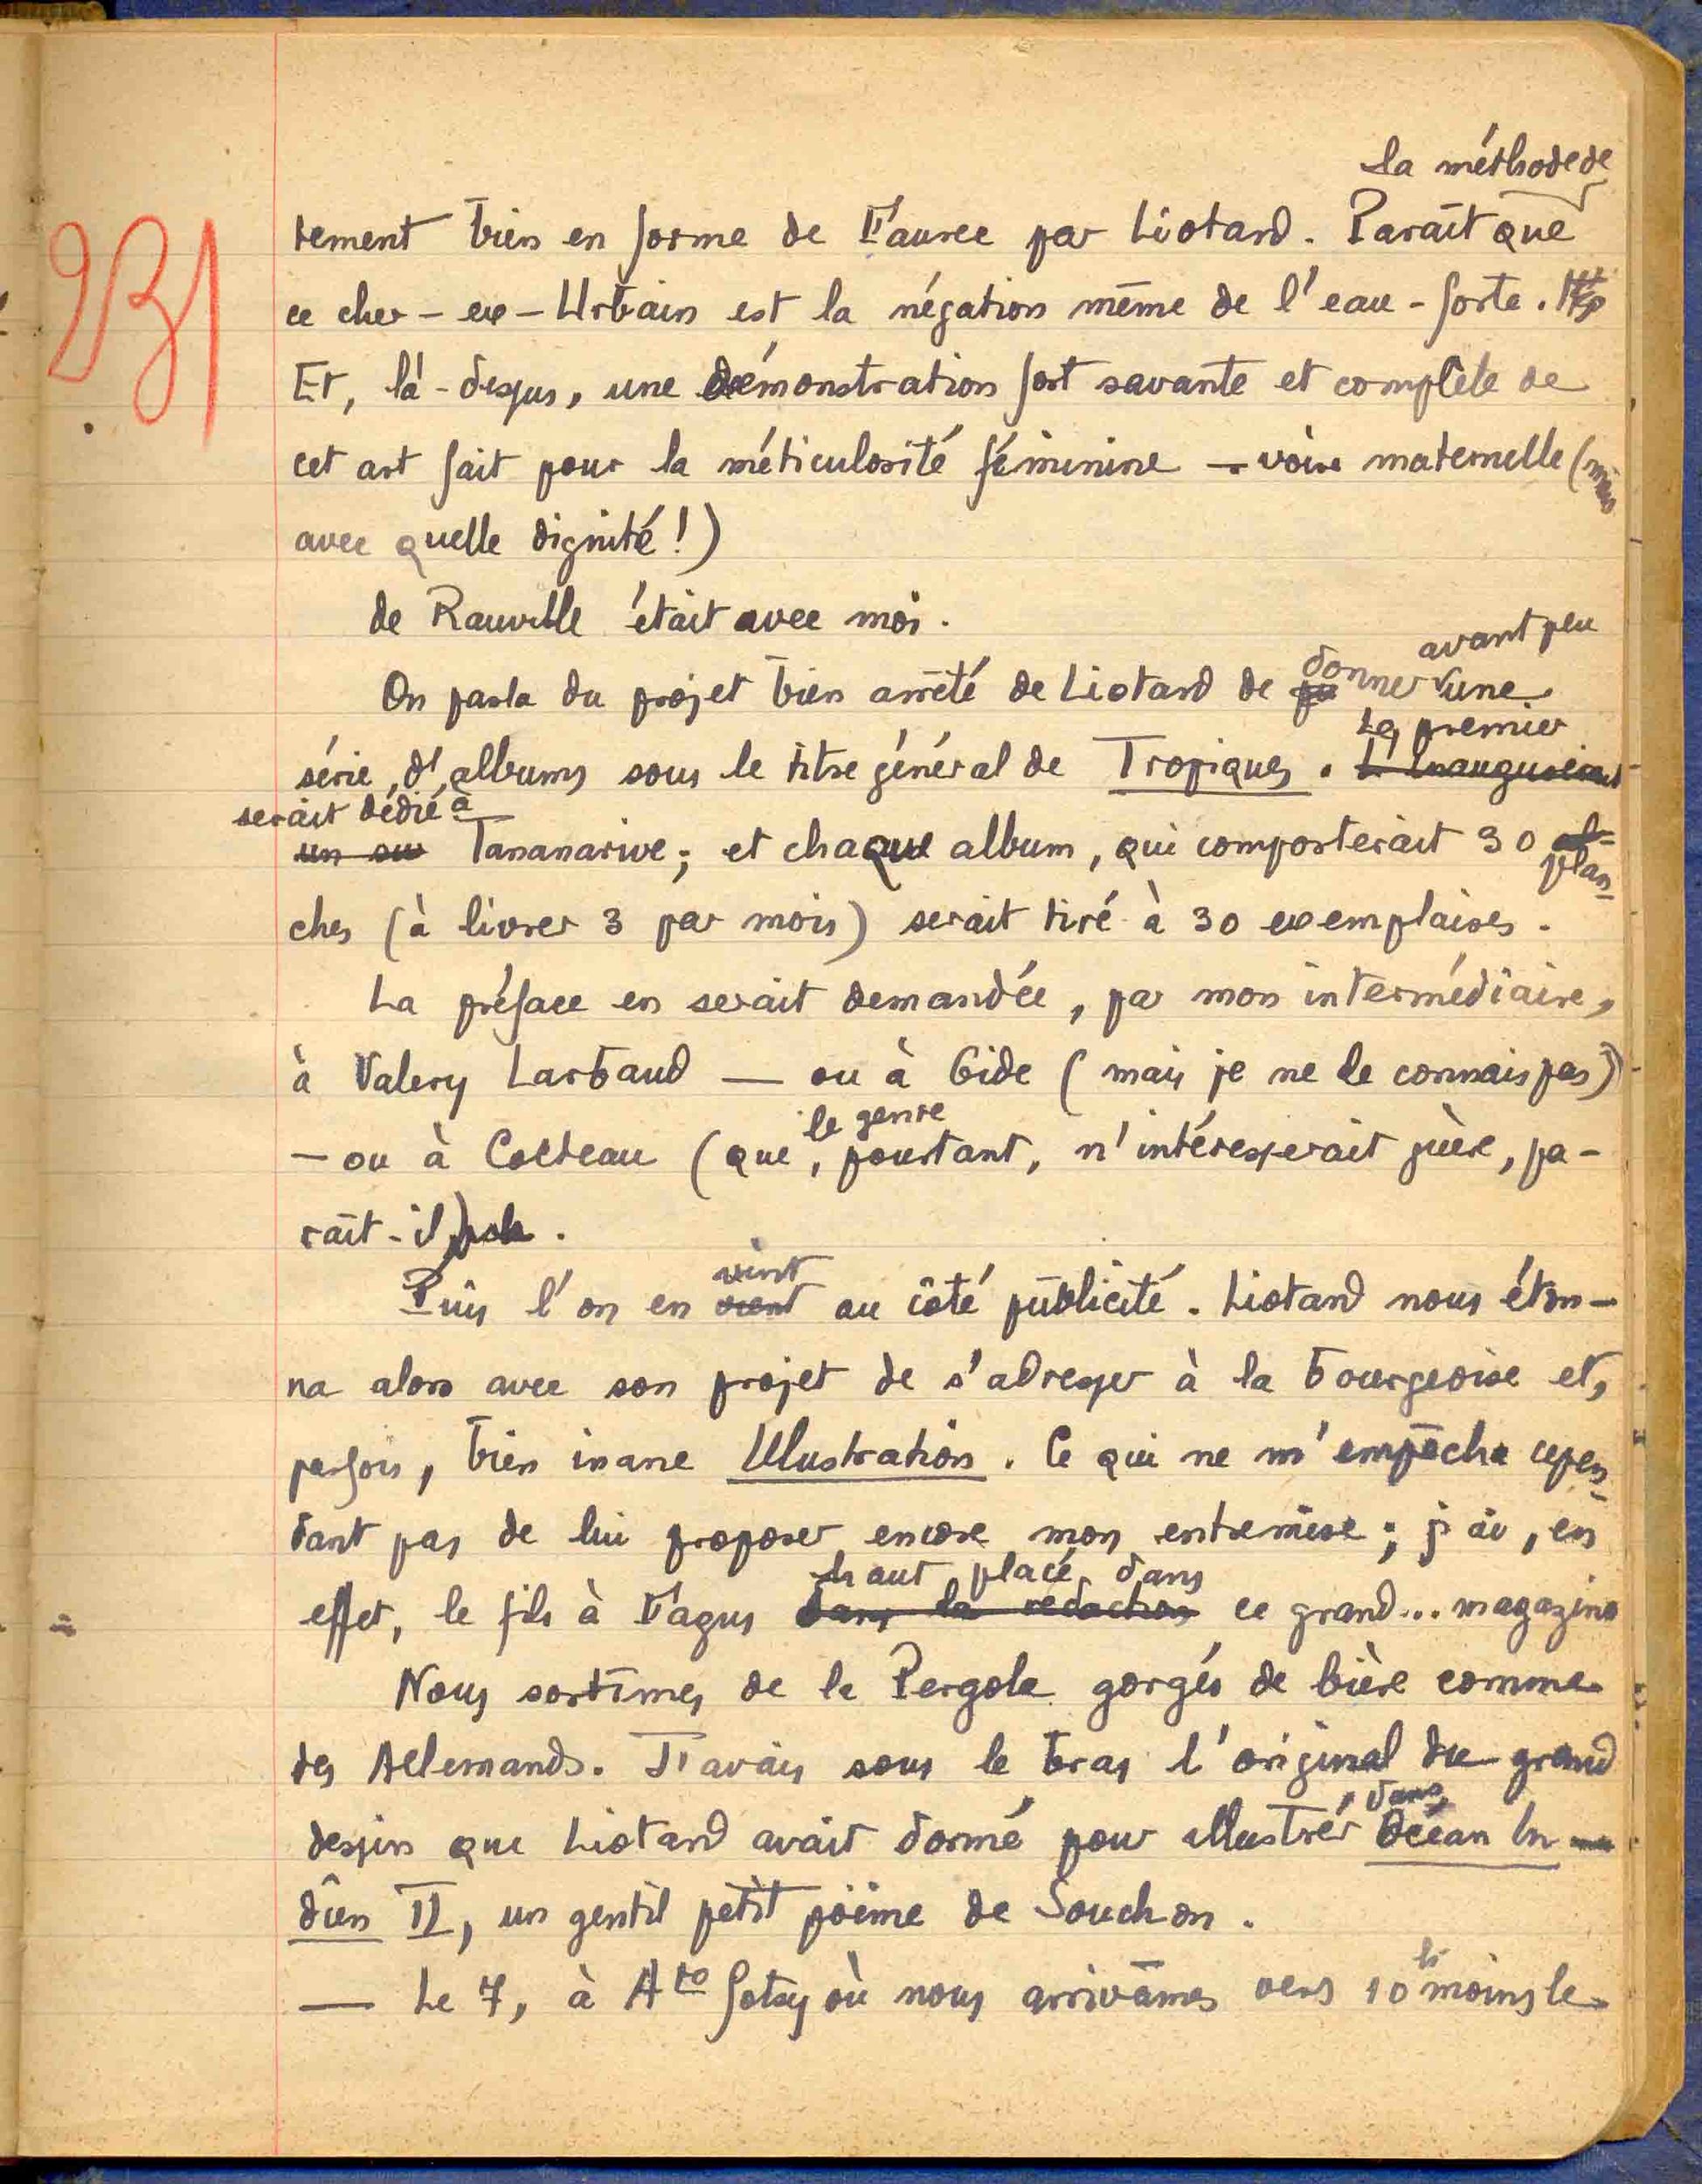 231
la méthode de
tement bien en forme de Fauree par Liotard. Paraît que
ce cher-ex-Urbain est la négation même de l'eau-forte.
Et, là-dessus, une démonstration fort savante et complète de
cet art fait pour la méticulosité féminine — voire maternelle (mais
avec quelle dignité!)
de Rauville était avec moi.
avant peu
On parla du projet bien arrêté de Liotard de donner une
Le premier
série d'albums sous le titre général de Tropiques. L'inaugurerait
serait dédié à
un sur Tananarive; et chaque album, qui comporterait 30 al- plan-
ches (à livrer 3 par mois) serait tiré à 30 exemplaires.
La préface en serait demandée, par mon intermédiaire,
à Valery Larbaud — ou à Gide (mais je ne le connais pas)
le genre
— ou à Cocteau (que, pourtant, n'intéresserait guère, pa-
raît-il).
vint
Puis l'on en vient au côté publicité. Liotard nous éton-
na alors avec son projet de s'adresser à la bourgeoise et,
parfois, bien inane Illustration. Ce qui ne m'empêcha cepen-
dant pas de lui proposer encore mon entremise; j'ai, en
haut placé dans
effet, le fils à Fagus dans la rédaction ce grand... magazine
Nous sortîmes de la Pergola gorgés de bière comme
des Allemands. J'avais sous le bras l'original du grand
, dans
dessin que Liotard avait donné pour illustrer Océan In-
dien II, un gentil petit poème de Souchon.
— Le 7, à Ato fotsy où nous arrivâmes vers 10 h moins le